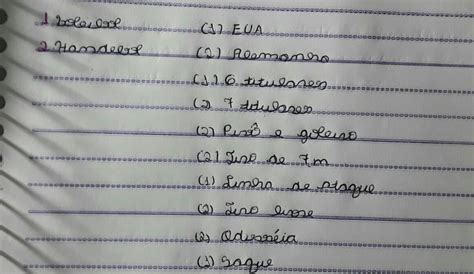 1 Voleibol (1) EUA
2 Handebol (2) Alemanha
(1) 6 titulares
(2) 7 titulares
(2) Pivô e goleiro
(2) Tiro de 7m
(1) Linha de ataque
(2) Tiro livre
(2)
(1) Saque